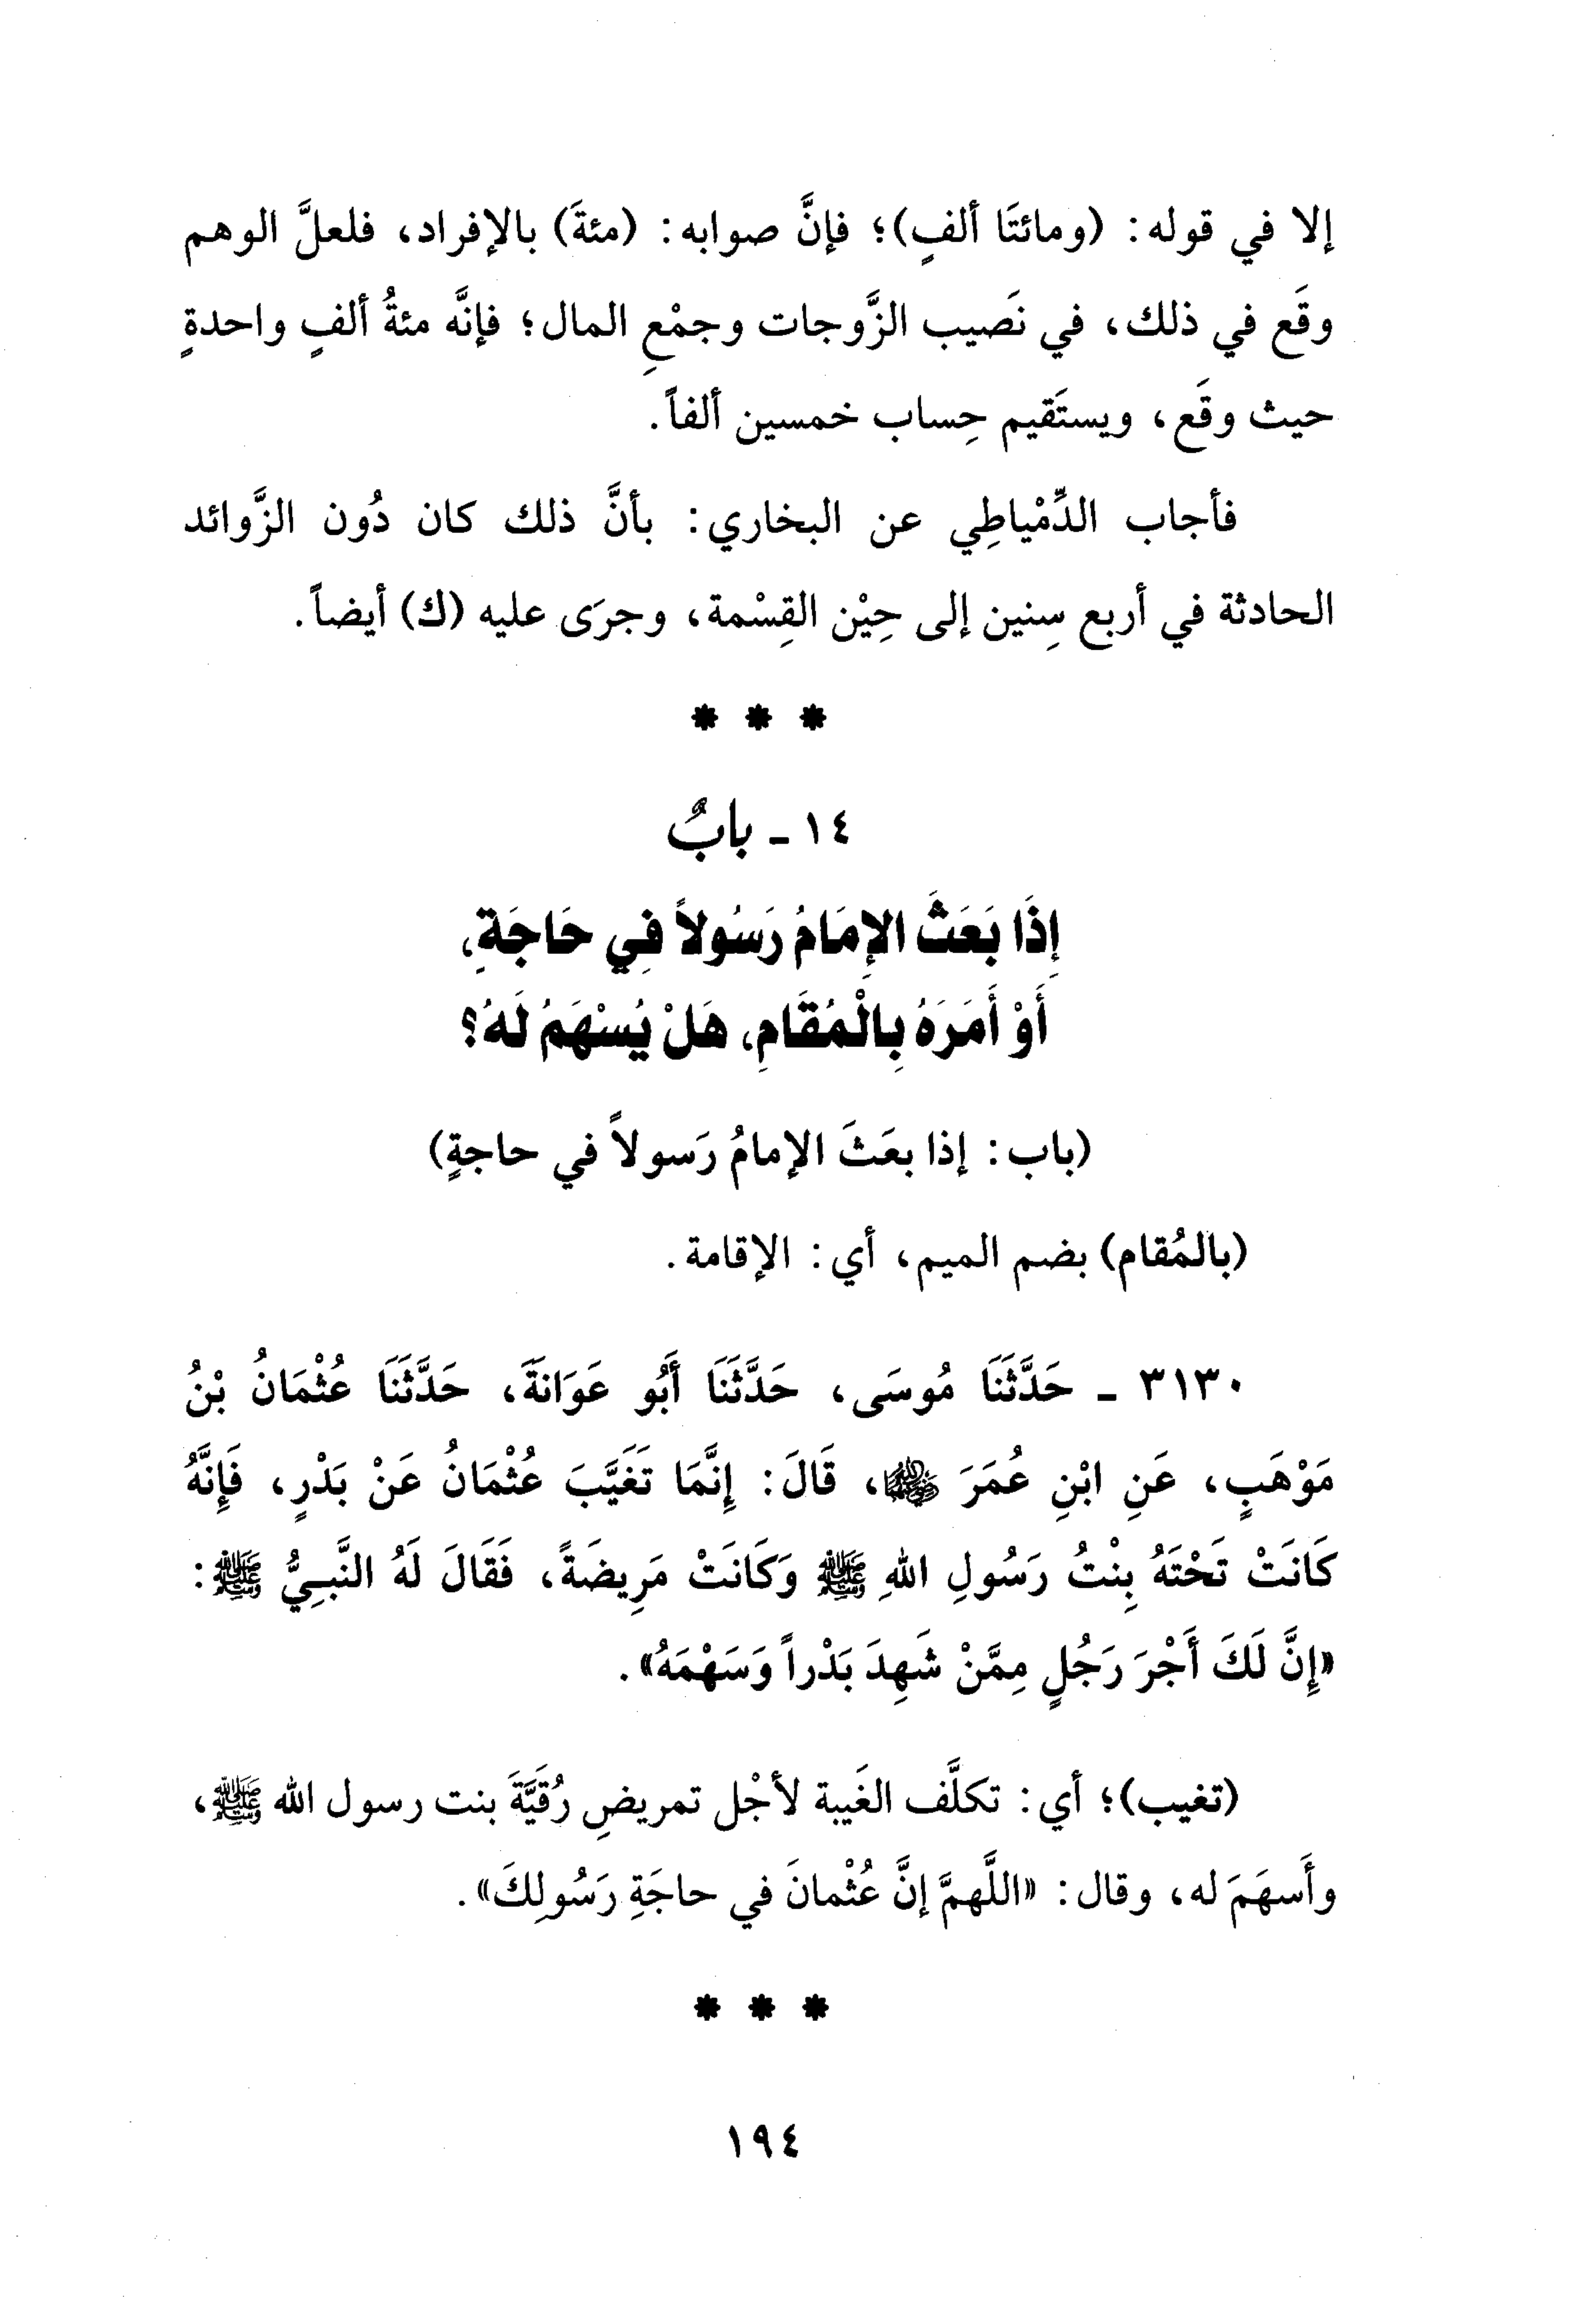 إلا في قوله: (ومائتَا ألفٍ)؛ فإنَّ صوابه: (مئةَ) بالإفراد، فلعلَّ الوهم
وقَع في ذلك، في نَصيب الزَّوجات وجمْعِ المال؛ فإنَّه مئةُ ألفٍ واحدةٍ
حيث وقَع، ويستَقيم حِساب خمسين ألفاً.
فأجاب الدِّمْياطِي عن البخاري: بأنَّ ذلك كان دُون الزَّوائد
الحادثة في أربع سِنين إلى حِيْن القِسْمة، وجرَى عليه (ك) أيضاً.
* * *
١٤ - بابٌ
إِذَا بَعَثَ الإِمَامُ رَسُولاً فِي حَاجَةٍ،
أَوْ أَمَرَهُ بِالْمُقَامِ، هَلْ يُسْهَمُ لَهُ؟
(باب: إذا بعَثَ الإمامُ رَسولاً في حاجةٍ)
(بالمُقام) بضم الميم، أي: الإقامة.
٣١٣٠ - حَدَّثَنَا مُوسَى، حَدَّثَنَا أَبُو عَوَانَةَ، حَدَّثَنَا عُثْمَانُ بْنُ
مَوْهَبٍ، عَنِ ابْنِ عُمَرَ ﵄، قَالَ: إِنَّمَا تَغَيَّبَ عُثْمَانُ عَنْ بَدْرٍ، فَإِنَّهُ
كَانَتْ تَحْتَهُ بِنْتُ رَسُولِ اللهِ ﷺ وَكَانَتْ مَرِيضَةً، فَقَالَ لَهُ النَّبِيُّ ﷺ:
«إِنَّ لَكَ أَجْرَ رَجُلٍ مِمَّنْ شَهِدَ بَدْراً وَسَهْمَهُ».
(تغيب)؛ أي: تكلَّف الغَيبة لأجْل تمريضِ رُقيَّةَ بنت رسول الله ﷺ،
وأَسهَمَ له، وقال: «اللَّهمَّ إنَّ عُثْمانَ في حاجَةِ رَسُولِكَ».
* * *
١٩٤